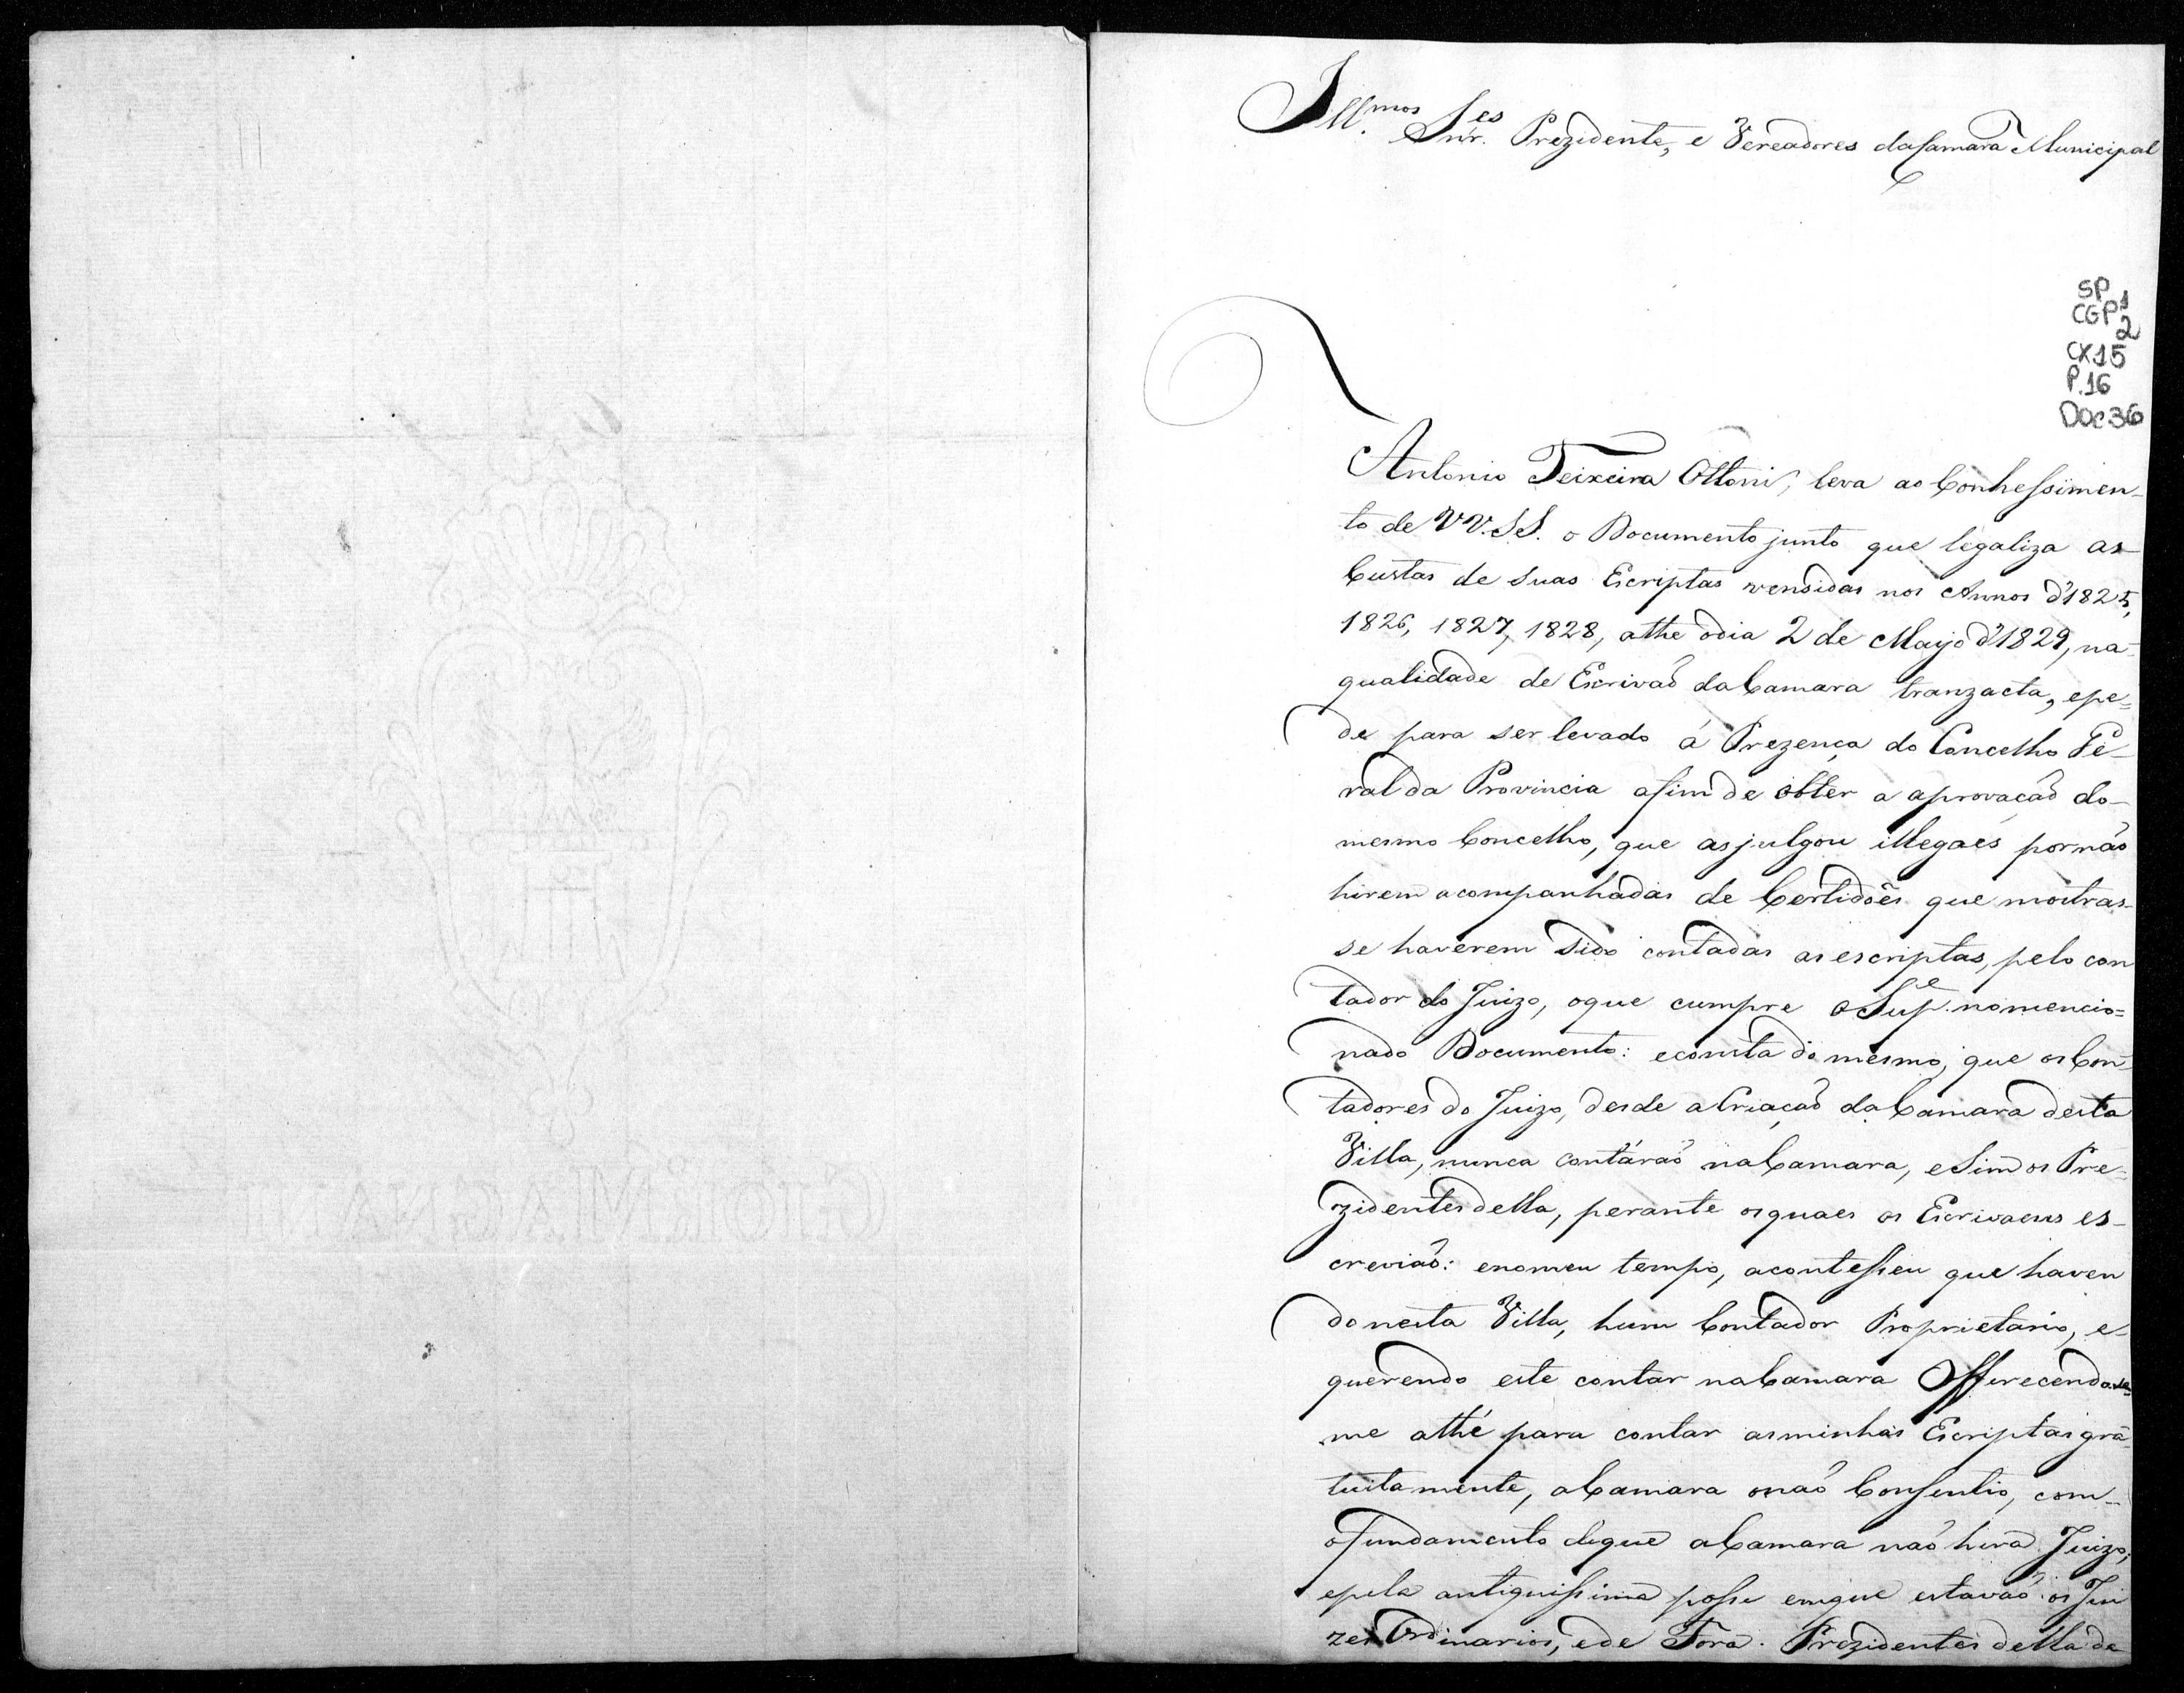 Ill.mos Snr.es Prezidente, e Vereadores da Camara Municipal
SP
CGP1
2
CX15
P.16
DOC36
Antonio Teixeira Ottoni, leva ao Conhessimen-
to de VV.SS. o Documento junto que legaliza as
Custas de suas Escriptas vensidas nos Annos d'1825,
1826, 1827, 1828, athe o dia 2 de Mayo d'1829, na
qualidade de Escrivaõ da Camara tranzacta, e pe=
de para ser levado á Prezença do Concelho Ge-
ral da Provincia a fim de obter a aprovaçaõ do
mesmo Concelho, que as julgou illegaes por naõ
hirem acompanhadas de Certidoẽs que mostras-
se haverem sido contadas as escriptas, pelo con
tador do Juizo, o que cumpre o Sup.e no mencio=
nado Documento: e consta do mesmo, que os Con-
tadores do Juizo, desde a Criaçaõ da Camara desta
Villa, nunca contáraõ na Camara, e Sim os Pre-
zidentes della, perante os quaes os Escrivaens es-
creviaõ: e no meu tempo, acontesseu que haven
do nesta Villa, hum Contador Proprietario, e
querendo este contar na Camara Offerecendo-se-
me athé para contar as minhas Escriptas gra-
tuitamente, a Camara o naõ Consentio, com-
o fundamento de que a Camara naõ hera Juizo,
e pela antiquissima posse em que estavaõ os Jui
zes Ordinarios, e de Fora. Prezidentes della de
CHOLM A G NANI